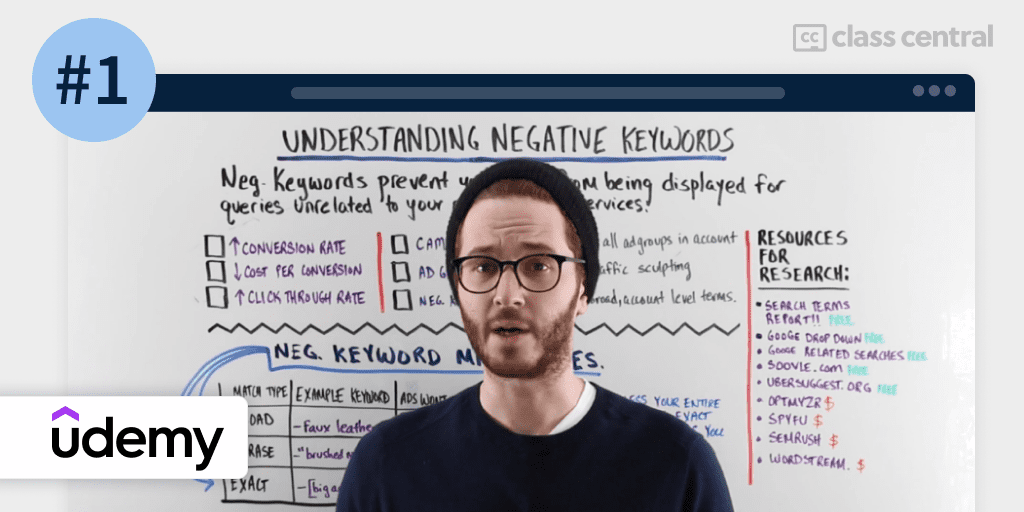 #1
class central
UNDERSTANDING NEGATIVE KEYWORDS
Neg-Keywords prevent being displayed for
queries unrelated to your
↑ CONVERSION RATE
↓ COST PER CONVERSION
↑ CLICK THROUGH RATE
AD
NEG.
all adgroups in account
sculpting
account level terms.
RESOURCES
FOR
RESEARCH:
• SEARCH TERMS
REPORT!! FREE
• GOOGE DROP DOWN FREE
• GOOGE RELATED SEARCHES FREE
• SOOVLE.COM FREE
• UBERSUGGEST.ORG FREE
• OPTMYZR $
• SPYFU $
• SEMRUSH $
• WORDSTREAM. $
NEG. KEYWORD
MATCH TYPE EXAMPLE KEYWORD ADS WONT
-Faux
EXACT
YOUR ENTIRE
EXACT
YOU
udemy